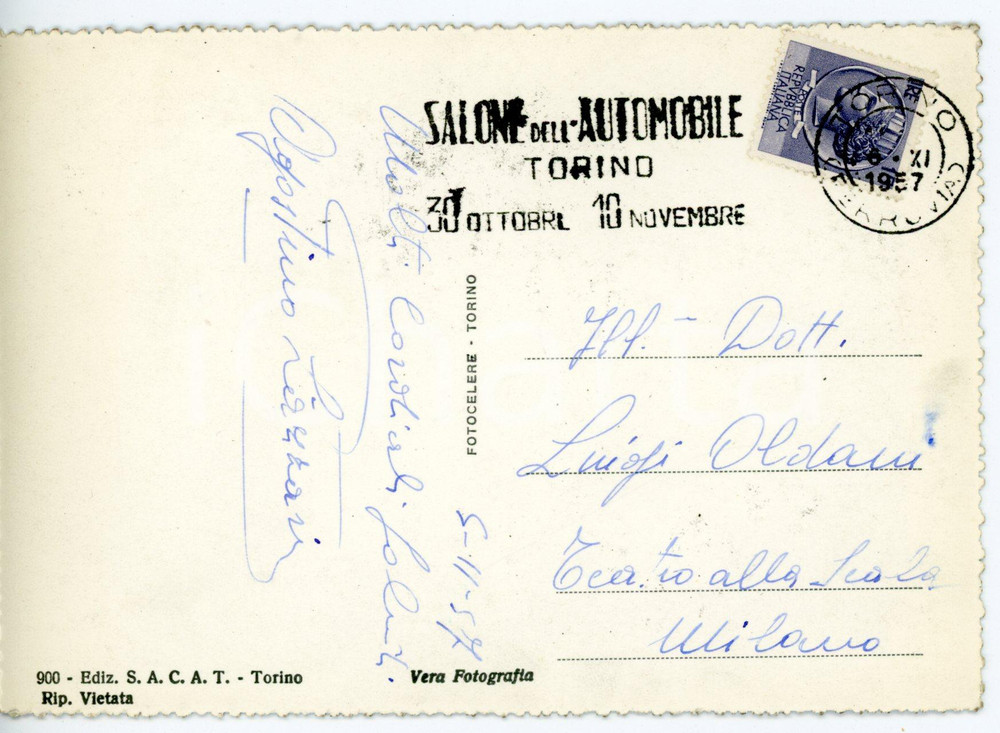 SALONE DELL'AUTOMOBILE
TORINO
30 OTTOBRE 10 NOVEMBRE
POSTE
REPVBBLICA
ITALIANA
LIRE
TORINO
6 • XI
1957
FERROVIA
Molti Cordiali Saluti.
5-11-57
Agostino Lazzari
FOTOCELERE - TORINO
Ill. - Dott.
Luigi Oldani
Teatro alla Scala
Milano
900 - Ediz. S. A. C. A. T. - Torino
Rip. Vietata
Vera Fotografia